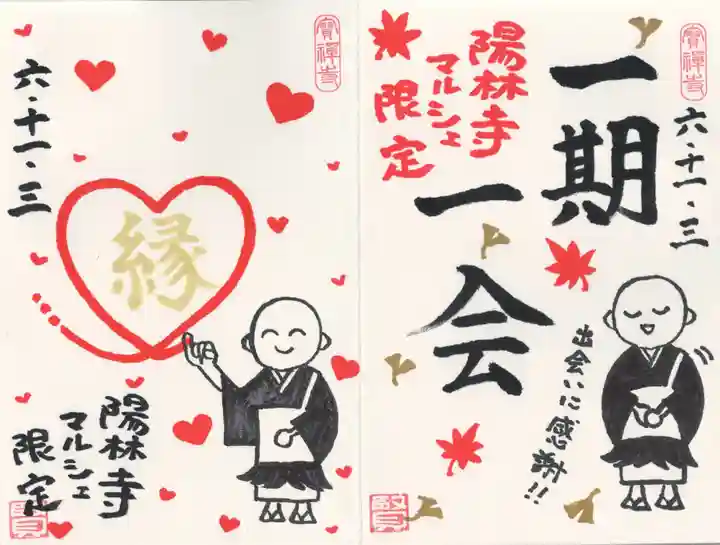 寳禅寺
六・十一・三
縁
陽林寺
マルシェ
限定
賢
寳禅寺
六・十一・三
一期
一会
陽林寺
マルシェ
限定
出会いに感謝!!
賢